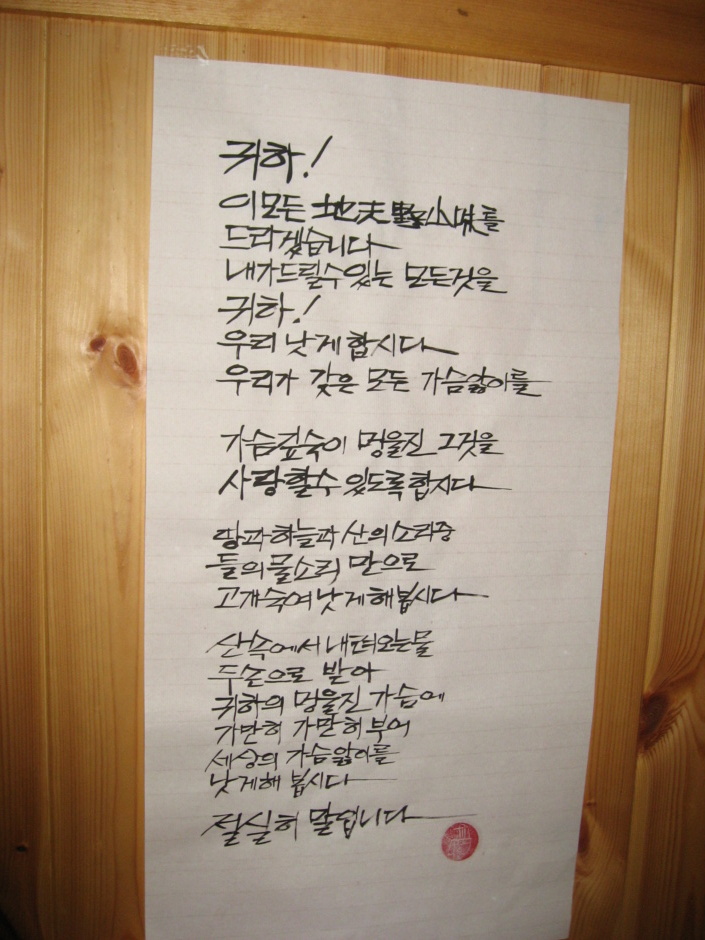 귀하!
이 모든 地天野山海를
드리겠습니다
내가드릴수있는 모든것을
귀하!
우리 낫게 합시다
우리가 갖은 모든 가슴앓이를
가슴깊숙이 멍울진 그것을
사랑할수 있도록합시다
땅과하늘과 산의소리중
들의물소리 만으로
고개숙여낫게해봅시다
산속에서내려오는물
두손으로 받아
귀하의 멍울진 가슴에
가만히 가만히부어
세상의 가슴앓이를
낫게해 봅시다
절실히 말입니다